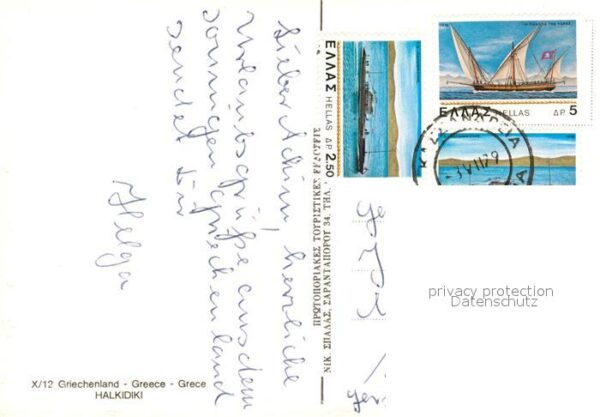 Lieber Achim, herzliche
Urlaubsgrüße aus dem
sonnigen Griechenland
sendet Dir
Helga
X/12 Griechenland - Greece - Grece
HALKIDIKI
ΠΡΩΤΟΠΟΡΙΑΚΕΣ ΤΟΥΡΙΣΤΙΚΕΣ
ΝΙΚ. ΣΠΑΛΑΣ, ΣΑΡΑΝΤΑΠΟΡΟΥ 34, ΤΗΛ.
ΕΛΛΑΣ HELLAS ΔΡ 2.50
ΕΛΛΑΣ HELLAS ΔΡ. 5
privacy protection
Datenschutz